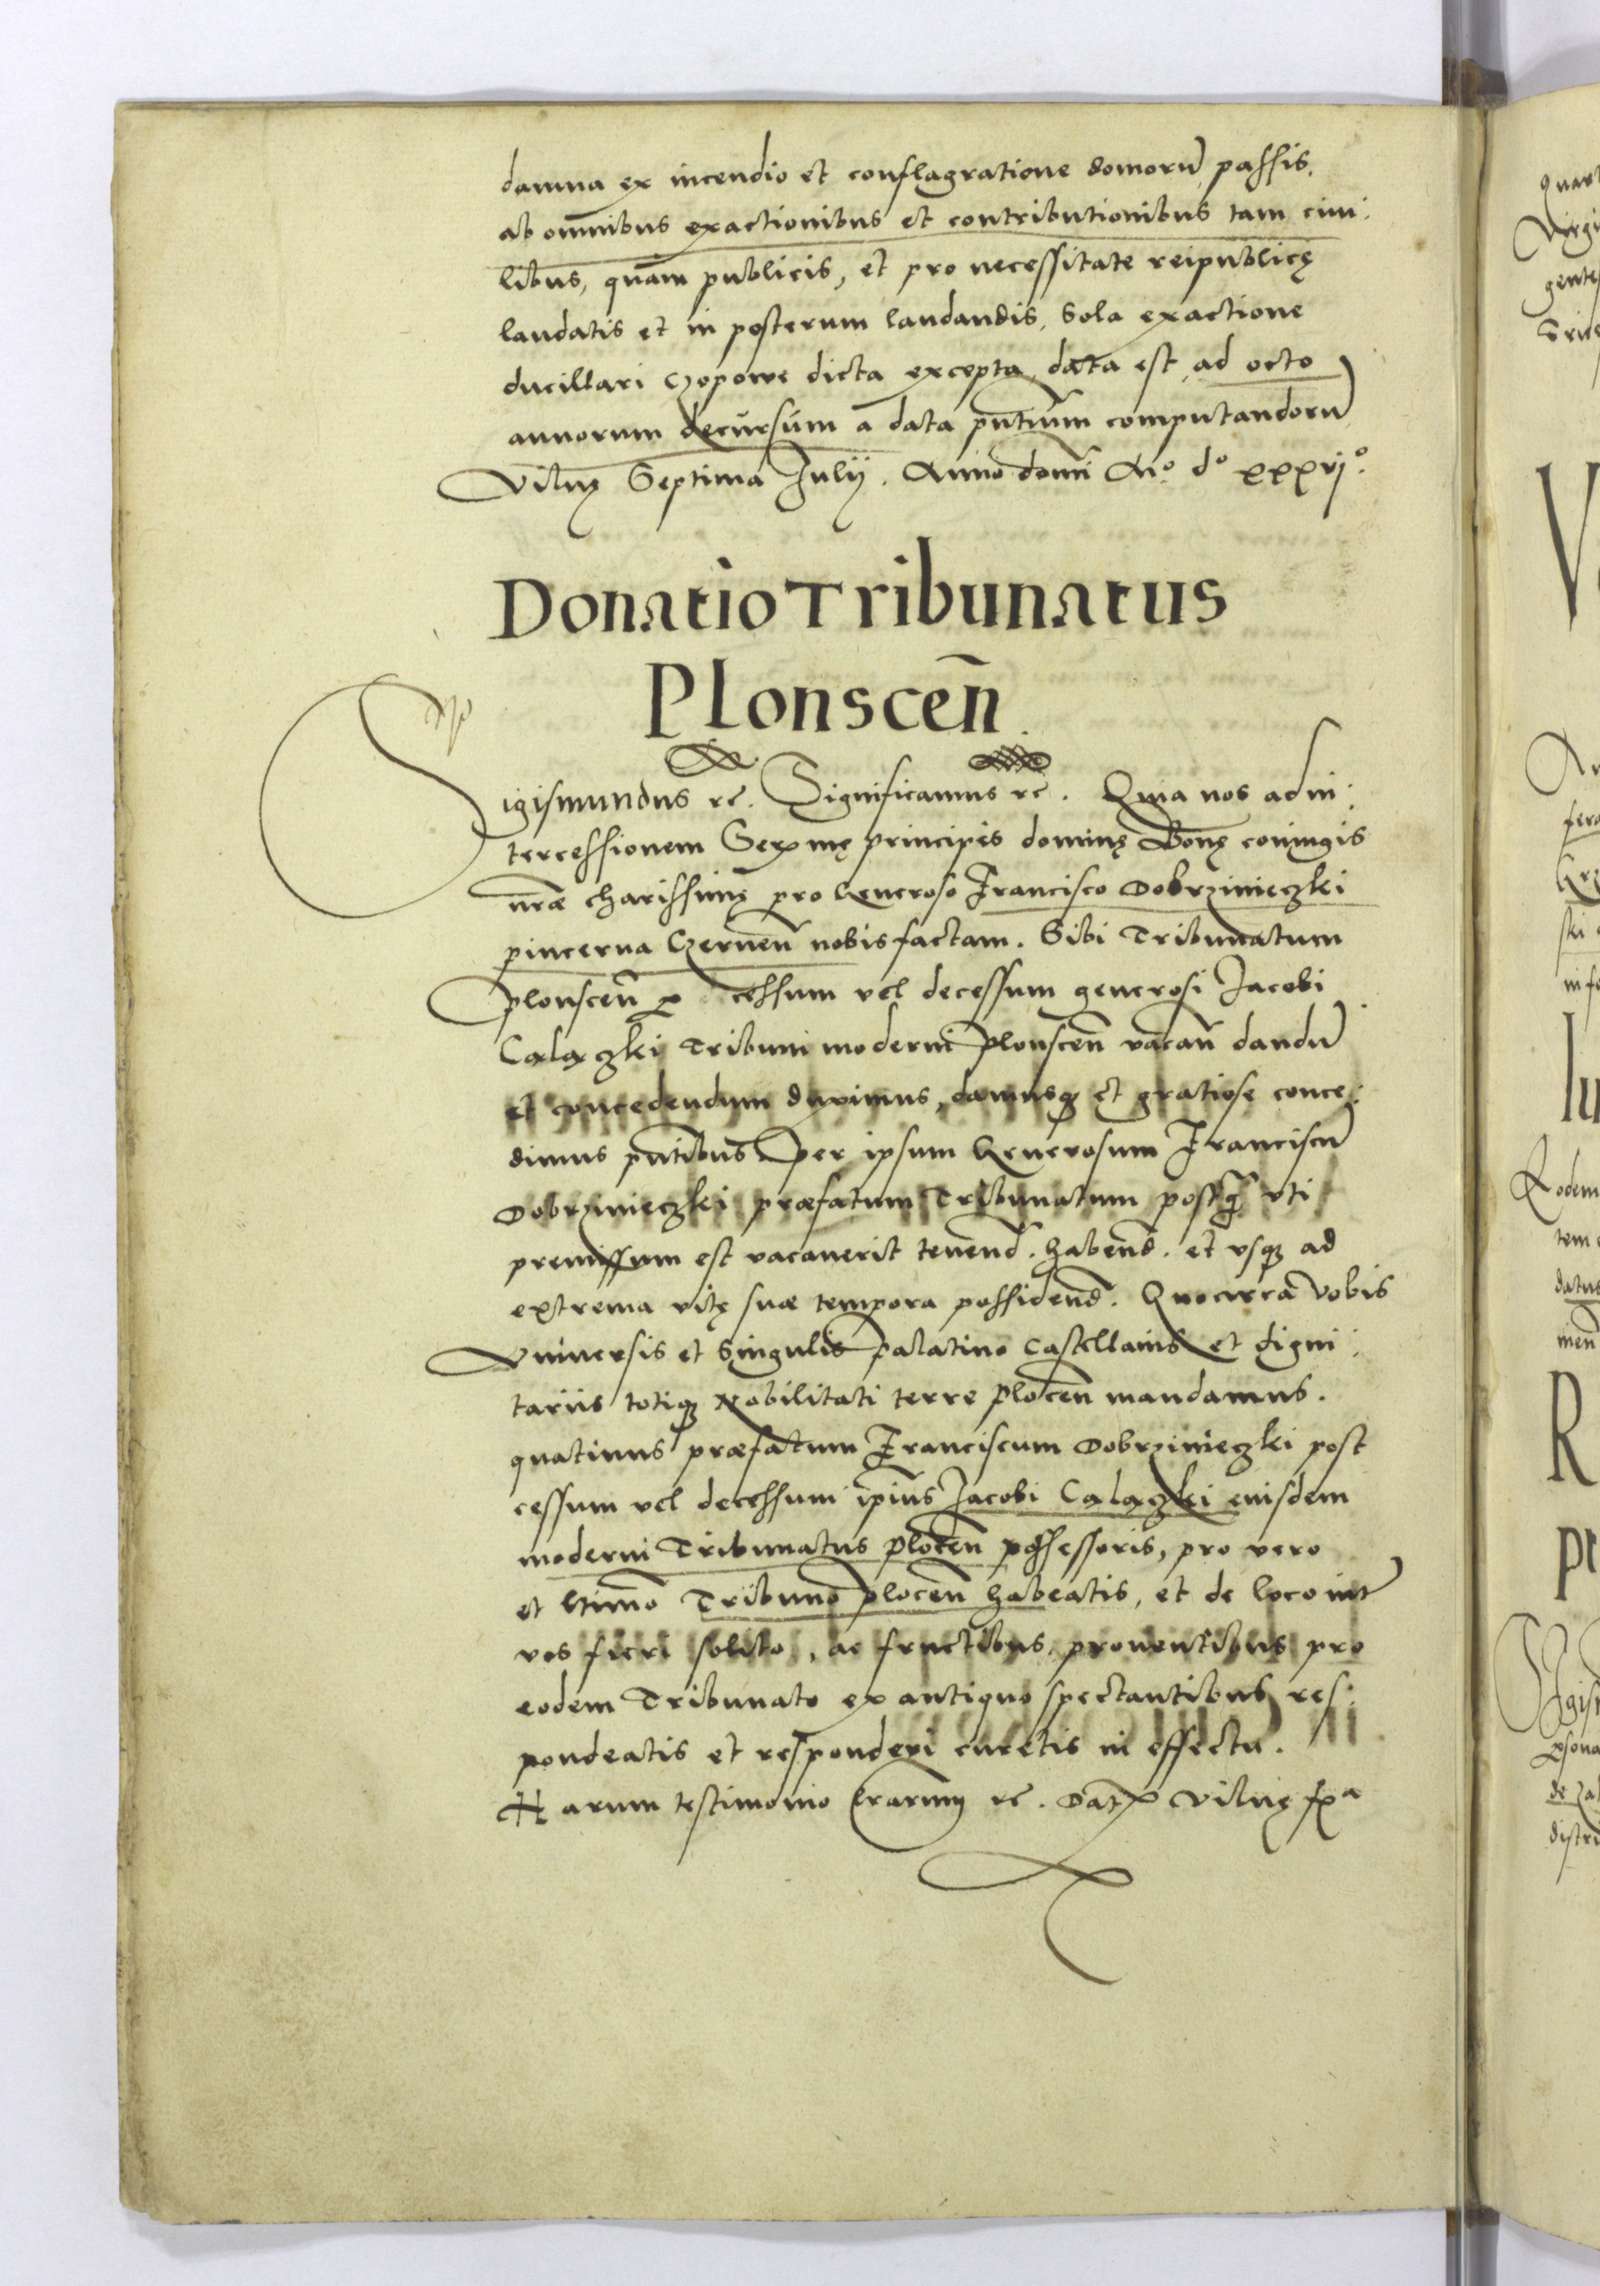 damna ex incendio et conflagratione domorũ passis,
ab omnibus exactionibus et contributionibus tam ciui:
libus, quam publicis, et pro necessitate reipublicę
laudatis et in posterum laudandis, Sola exactione
ducillari czopowe dicta excepta, data est, ad octo
annorum decursum a data pntium computandorũ
Vilnę Septima Julij. Anno domi Mº dº xxxvjº.
Donatio Tribunatus
Plonsceñ
Sigismundus rc. Significamus rc. Quia nos ad in:
tercessionem Serx mę principis dominę Bonę coniugis
nræ charissimę pro Generoso Francisco Dobrzinieczki
pincerna Czerneñ nobis factam. Sibi Tribunatum
plonsceñ p cessum vel decessum generosi Jacobi
Calaczki Tribuni moderni plonsceñ vacañ dandũ
et concedendum duximus, damusq et gratiose conce:
dimus pntibus Per ipsum Generosum Franciscũ
Dobrzinieczki præfatum Tribunatum postq̃ vti
premissum est vacauerit teneñd. habeñd. et vsq ad
extrema vitę suæ tempora possideñd. Quocirca vobis
Vniuersis et Singulis Palatino Castellanis et digni:
tariis totiq Nobilitati terre Ploceñ mandamus.
quatinus præfatum Franciscum Dobrzinieczki post
cessum vel decessum ipius Jacobi Calaczki euisdem
moderni Tribunatus ploceñ possessoris, pro vero
et ltimo Tribuno ploceñ habeatis, et de loco int
vos fieri solito, ac fructibus, prouentibus pro
eodem Tribunato ex antiquo spectantibus res:
pondeatis et responderi curetis in effectu.
Harum testimonio lrarum rc. Dat Vilnę